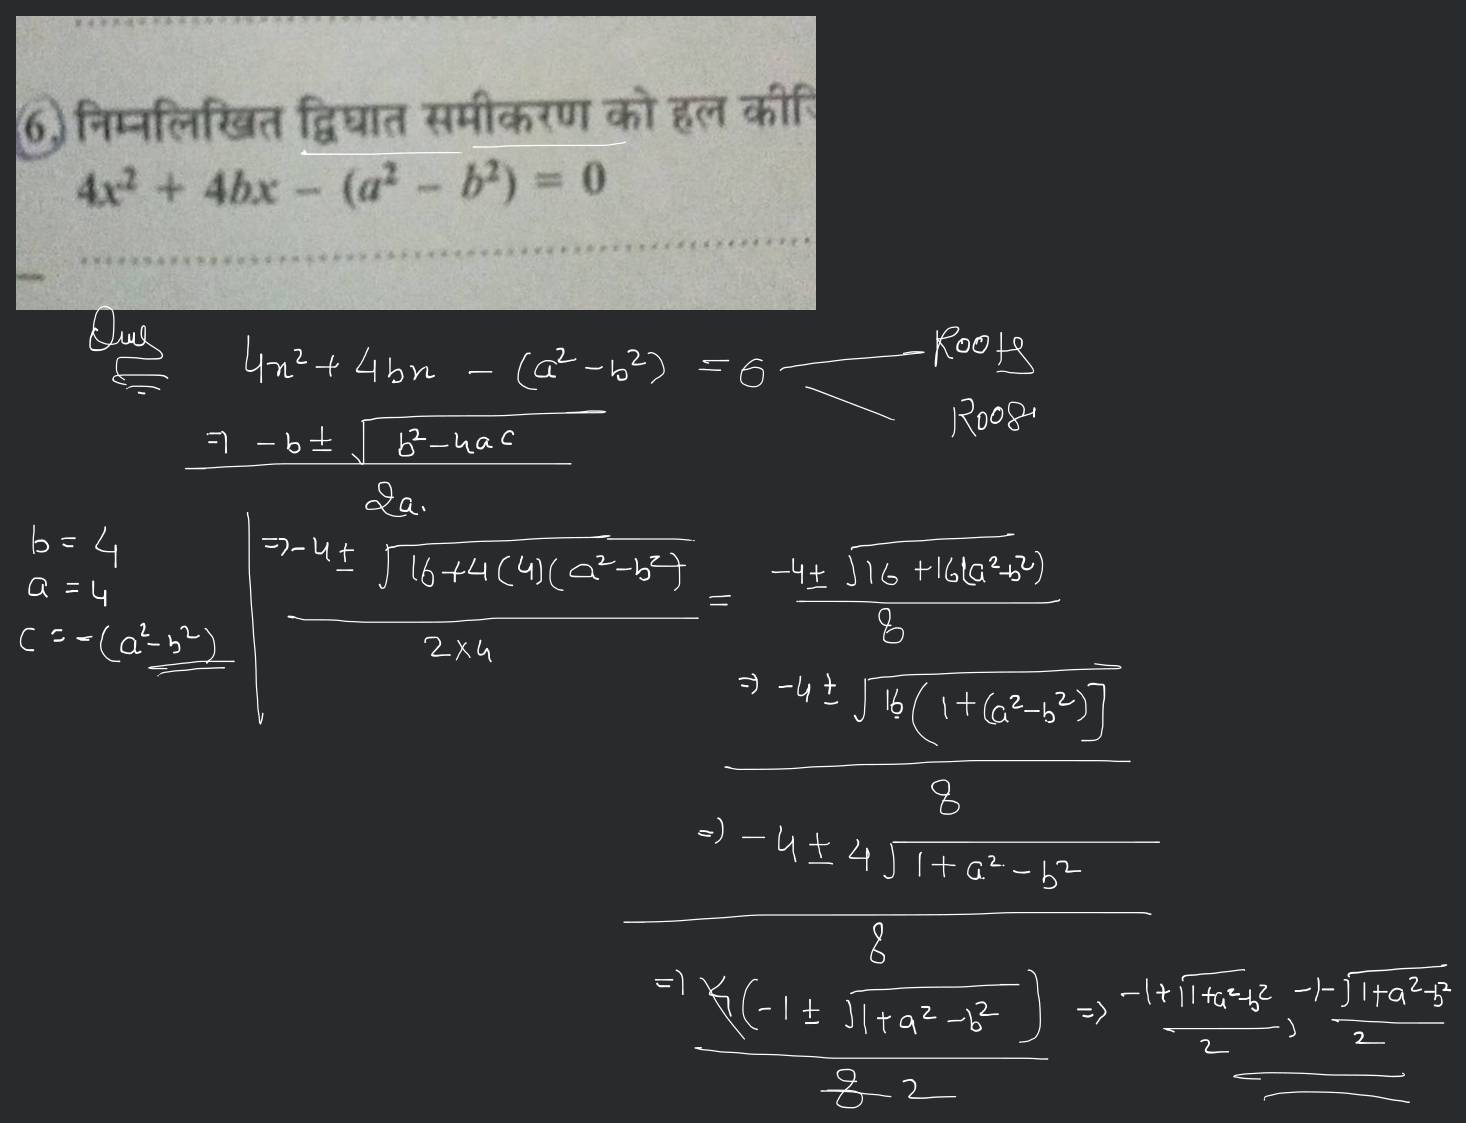 6. निम्नलिखित द्विघात समीकरण को हल कीजि
4x² + 4bx − (a² − b²) = 0
Ques
4x² + 4bx − (a² − b²) = 0
Roots
Roos
⇒ −b ± √(b² − 4ac)
2a.
b = 4
a = 4
c = −(a² − b²)
⇒ −4 ± √(16 + 4(4)(a² − b²))
2×4
= −4 ± √(16 + 16(a² − b²))
8
⇒ −4 ± √(16(1 + (a² − b²)])
8
⇒ −4 ± 4√(1 + a² − b²)
8
⇒ 4(−1 ± √(1 + a² − b²))
8 2
⇒ −1 + √(1 + a² − b²)/2 , −1 − √(1 + a² − b²)/2